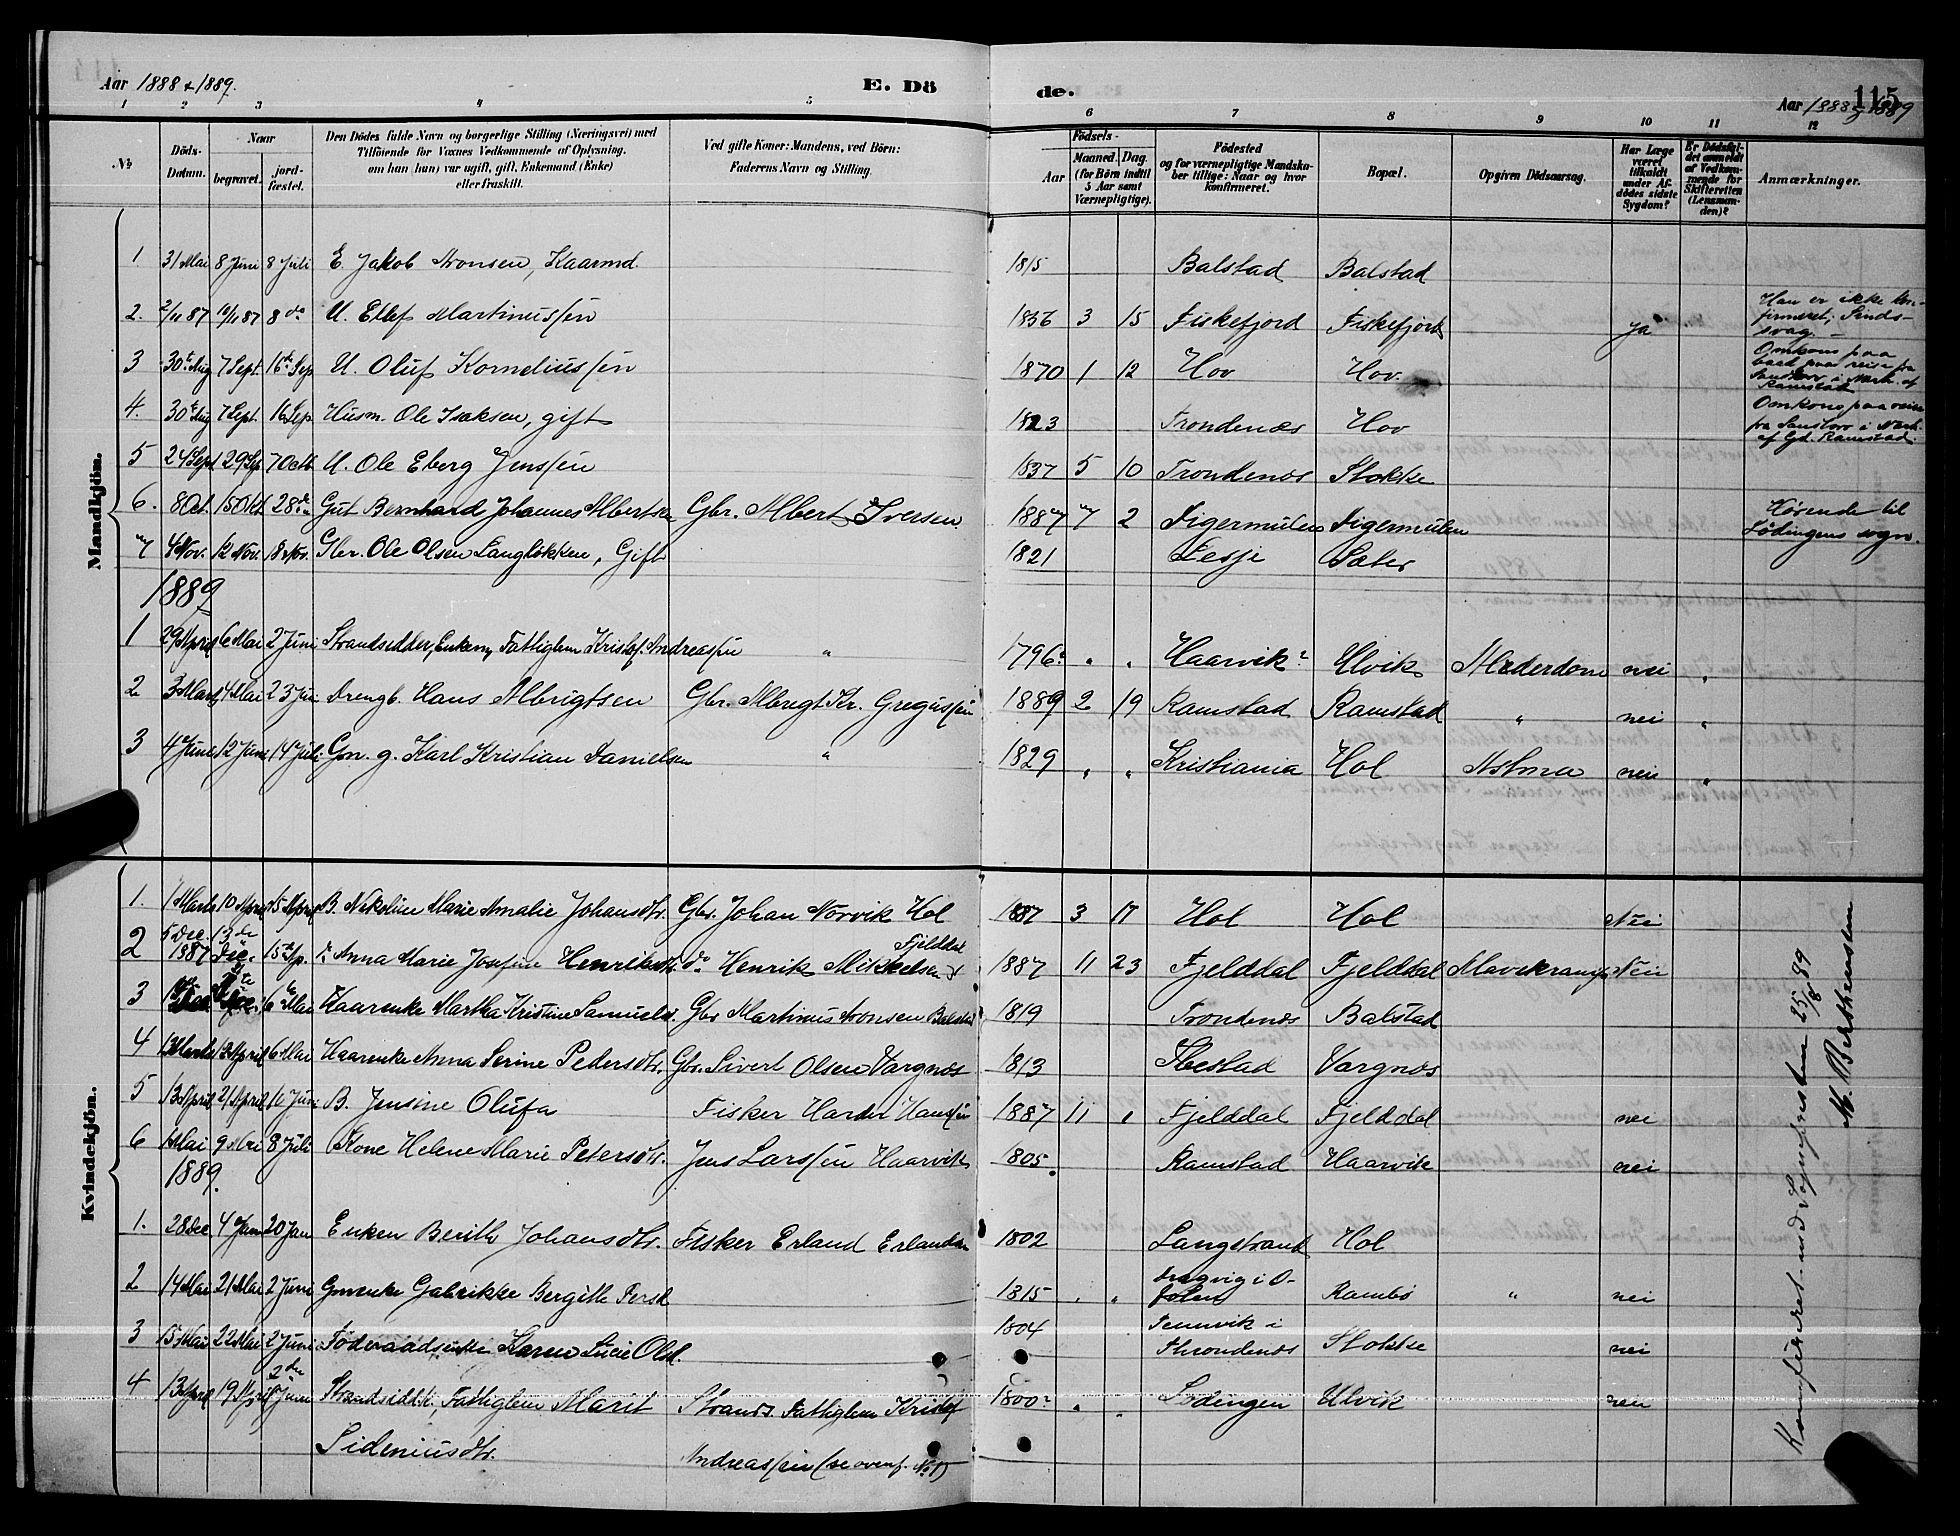 Aar 1888 & 1889. E. Dö de. Aar 1888 & 1889 115
1 2 3 4 5 6 7 8 9 10 11 12
№ Döds-Datum. Naar begravet. jordfæstet. Den Dödes fulde Navn og borgerlige Stilling (Næringsvei) med Tilföiende for Voxnes Vedkommende af Oplysning, om han (hun) var ugift, gift, Enkemand (Enke) eller fraskilt. Ved gifte Koner: Mandens, ved Börn: Faderens Navn og Stilling. Födsels- Aar Maaned. Dag. (for Börn indtil 5 Aar samt Værnepligtige). Födested og for værnepligtige Mandskaber tillige: Naar og hvor konfirmeret. Bopæl. Opgiven Dödsaarsag. Har Læge været tilkaldt under Afdödes sidste Sygdom? Er Dödsfaldet anmeldt af Vedkommende for Skifteretten (Lensmanden)? Anmærkninger.
Mandkjön.
1. 31 Mai 8 Juni 8 Juli E. Jakob Aronsen, Kaarmd. 1815 Balstad Balstad
2. 2/11 87 10/11 87 8 do U. Ellef Martinussen 1836 3 15 Fiskefjord Fiskefjord Ja Han er ikke konfirmeret; Sindssvag.
3 30te Aug 7 Sept. 16de Sep U. Oluf Korneliussen 1870 1 12 Hov Hov. Omkom paa
4. 30te Aug 7 Sept. 16 Sep Husm. Ole Isaksen, gift 1823 Trondenæs Hov Omkom paa reise fra
5 24 Sept 29 Sep 7 Octb U. Ole Eberg Jenssen 1837 5 10 Trondenæs Stokke
6. 8 Oct. 15 Okt. 28de Gut Bernhard Johannes Albertsen Gbr. Albert Iversen 1887 7 2 Digermulen Digermulen Hørende til Lödingens sogn.
7 4 Nov. 12 Nov. 18 Nov. Gbr. Ole Olsen Langlökken, Gift 1821 Lesje Sæter
1889
1 29 April 6 Mai 2 Juni Strandsidder, Enkem, Fattiglem Kristof. Andreassen " 1796? " " Haarvik? Ulvik Alderdom nei "
2 3 Marts 4 Mai 23 Juni Drengb. Hans Albrigtsen Gbr. Albregt Kr. Gregussen 1889 2 19 Ramstad Ramstad " nei "
3 4 June 12 June 14 Juli Gm. g. Karl Kristian Danielsen " 1829 " " Kristiania Hol Astma nei "
Kvindekjön.
1. 1 Marts 10 April 15 April B. Nikoline Marie Amalie Johansdtr. Gbr. Johan Norvik Hol 1887 3 17 Hol Hol Nei
2 5 Dec. 1887 13de Dec. 15de Ap. Anna Marie Josefine Henriksdtr do Henrik Mikkelsen Fjelddal 1887 11 23 Fjelddal Fjelddal Mavekrampe Nei
3 6te Mai Kaarenke Martha Kristine Samuelsd. Gbr Martinus Aronsen Balstad 1819 Trondenæs Balstad
4 13 Marts 2 April 6 Mai Kaarenke Anna Serine Pedersdtr. Gbr. Sivert Olsen Vargnæs 1813 Ibestad Vargnæs
5 13 April 21 April 10 Juni B. Jensine Olufa Fisker Harder Hansen 1887 11 " Fjelddal Fjelddal nei
6 1 Mai 9 Mai 8 Juli Kone Helene Marie Petersdtr. Jens Larssen Haarvik 1805. Ramstad Haarvik nei
1889.
1. 28 Dec 4 Jan 20 Jan Enken Berith Johansdtr. Fisker Erland Erlandsen 1802 Langstrand Hol
2 14 Mai 21 Mai 2 Juni Gmenke Gabrikke Bergitte Persd 1815 " " i Ofoten Rambö " nei
3 15 Mai 22 Mai 2 Juni Föderaadsenke Karen Lucie Olsd. 1804 Tennvik i Throndenæs Stokke nei
4 13 April 19 April 2de Junii Strandsiddk., Fattiglem Marit Strands. Fattiglem Kristof 1800? " " Lödingen Ulvik nei
Sideniusdtr. Andreassen (se ovenf. No 1)
Konfereret med Sognepresten 25/8 89
M. Berthensten